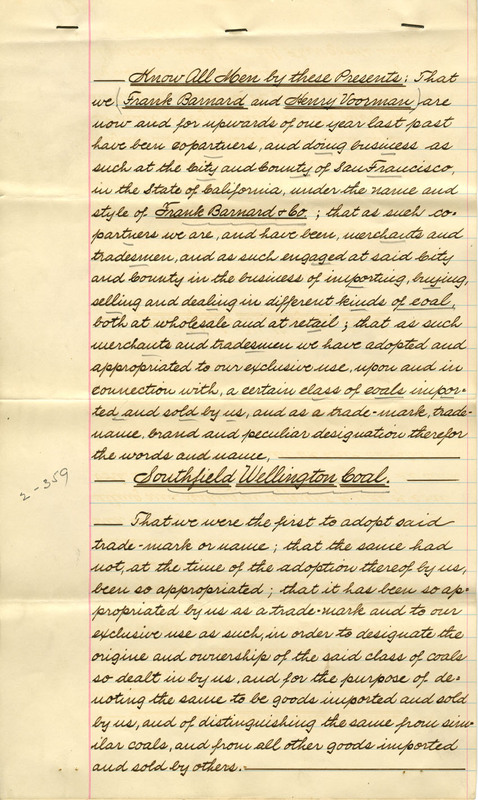 Know All Men by these Presents: That
we (Frank Barnard and Henry Voorman) are
now and for upwards of one year last past
have been copartners, and doing business as
such at the City and County of San Francisco,
in the State of California, under the name and
style of Frank Barnard & Co.; that as such co-
partners we are, and have been, merchants and
tradesmen, and as such engaged at said City
and County in the business of importing, buying,
selling and dealing in different kinds of coal,
both at wholesale and at retail; that as such
merchants and tradesmen we have adopted and
appropriated to our exclusive use, upon and in
connection with, a certain class of coals impor-
ted and sold by us, and as a trade-mark, trade-
name, brand and peculiar designation therefor
the words and name,
Southfield Wellington Coal.
2-359
That we were the first to adopt said
trade-mark or name; that the same had
not, at the time of the adoption thereof by us,
been so appropriated; that it has been so ap-
propriated by us as a trade-mark and to our
exclusive use as such, in order to designate the
origine and ownership of the said class of coals
so dealt in by us, and for the purpose of de-
noting the same to be goods imported and sold
by us, and of distinguishing the same from sim-
ilar coals, and from all other goods imported
and sold by others.